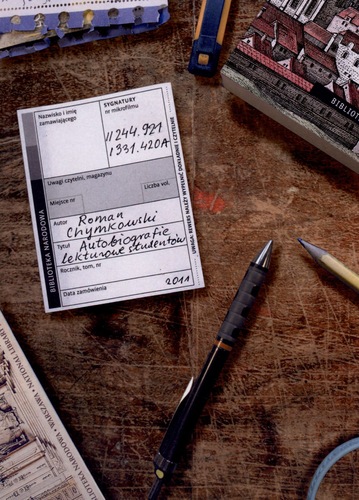 Nazwisko i imię
zamawiającego
SYGNATURY
nr mikrofilmu
II 244.921
1331.420A
Uwagi czytelni, magazynu
Miejsce nr
Liczba vol.
Autor Roman
Chymkowski
Tytuł Autobiografie
lekturowe studentów
Rocznik, tom, nr
2011
Data zamówienia
BIBLIOTEKA NARODOWA
UWAGA: REWERS NALEŻY WYPEŁNIĆ DOKŁADNIE I CZYTELNIE
BIBLIOT
BIBLIOTEKA NARODOWA • WARSZAWA • NATIONAL LIBRARY